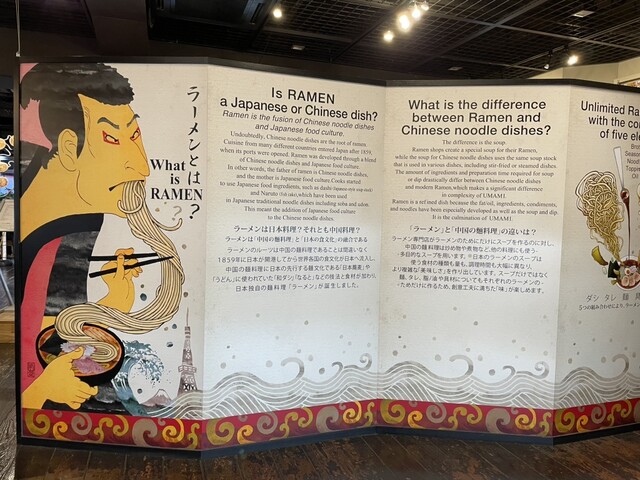 ラーメンとは?
What
is
RAMEN
?
Is RAMEN
a Japanese or Chinese dish?
Ramen is the fusion of Chinese noodle dishes
and Japanese food culture.
Undoubtedly, Chinese noodle dishes are the root of ramen.
Cuisine from many different countries entered Japan after 1859,
when its ports were opened. Ramen was developed through a blend
of Chinese noodle dishes and Japanese food culture.
In other words, the father of ramen is Chinese noodle dishes,
and the mother is Japanese food culture. Cooks started
to use Japanese food ingredients, such as dashi
and Naruto (fish cake), which have been used
in Japanese traditional noodle dishes including soba and udon.
This meant the addition of Japanese food culture
to the Chinese noodle dishes.
ラーメンは日本料理?それとも中国料理?
ラーメンは「中国の麺料理」と「日本の食文化」の融合である
ラーメンのルーツは中国の麺料理であることは間違いなく
1859年に日本が開港してから世界各国の食文化が日本へ流入し、
中国の麺料理に日本の先行する麺文化である「日本蕎麦」や
「うどん」に使われていた「和ダシ」「なると」などの技法と食材が加わり、
日本独自の麺料理「ラーメン」が誕生しました。
What is the difference
between Ramen and
Chinese noodle dishes?
The difference is the soup.
Ramen shops create a special soup for their Ramen,
while the soup for Chinese noodle dishes uses the same soup stock
that is used in various dishes, including stir-fried or steamed dishes.
The amount of ingredients and preparation time required for soup
or dip drastically differ between Chinese noodle dishes
and modern Ramen, which makes a significant difference
in complexity of UMAMI.
Ramen is a refined dish because the fat/oil, ingredients, condiments,
and noodles have been especially developed as well as the soup and dip.
It is the culmination of UMAMI.
「ラーメン」と「中国の麺料理」の違いは?
ラーメン専門店がラーメンのためだけにスープを作るのに対し、
中国の麺料理は炒め物や煮物など、他の料理にも使う
多目的なスープを用います。※日本のラーメンのスープは
使う食材の種類も量も、調理時間も大幅に異なり、
より複雑な「美味しさ」を作り出しています。スープだけではなく
麺、タレ、脂/油や具材についてもそれぞれのラーメンの
ためだけに作るため、創意工夫に満ちた「味」が楽しめます。
Unlimited Ra
with the co
of five ele
ダシ タレ 麺
5つの組み合わせにより、ラーメ